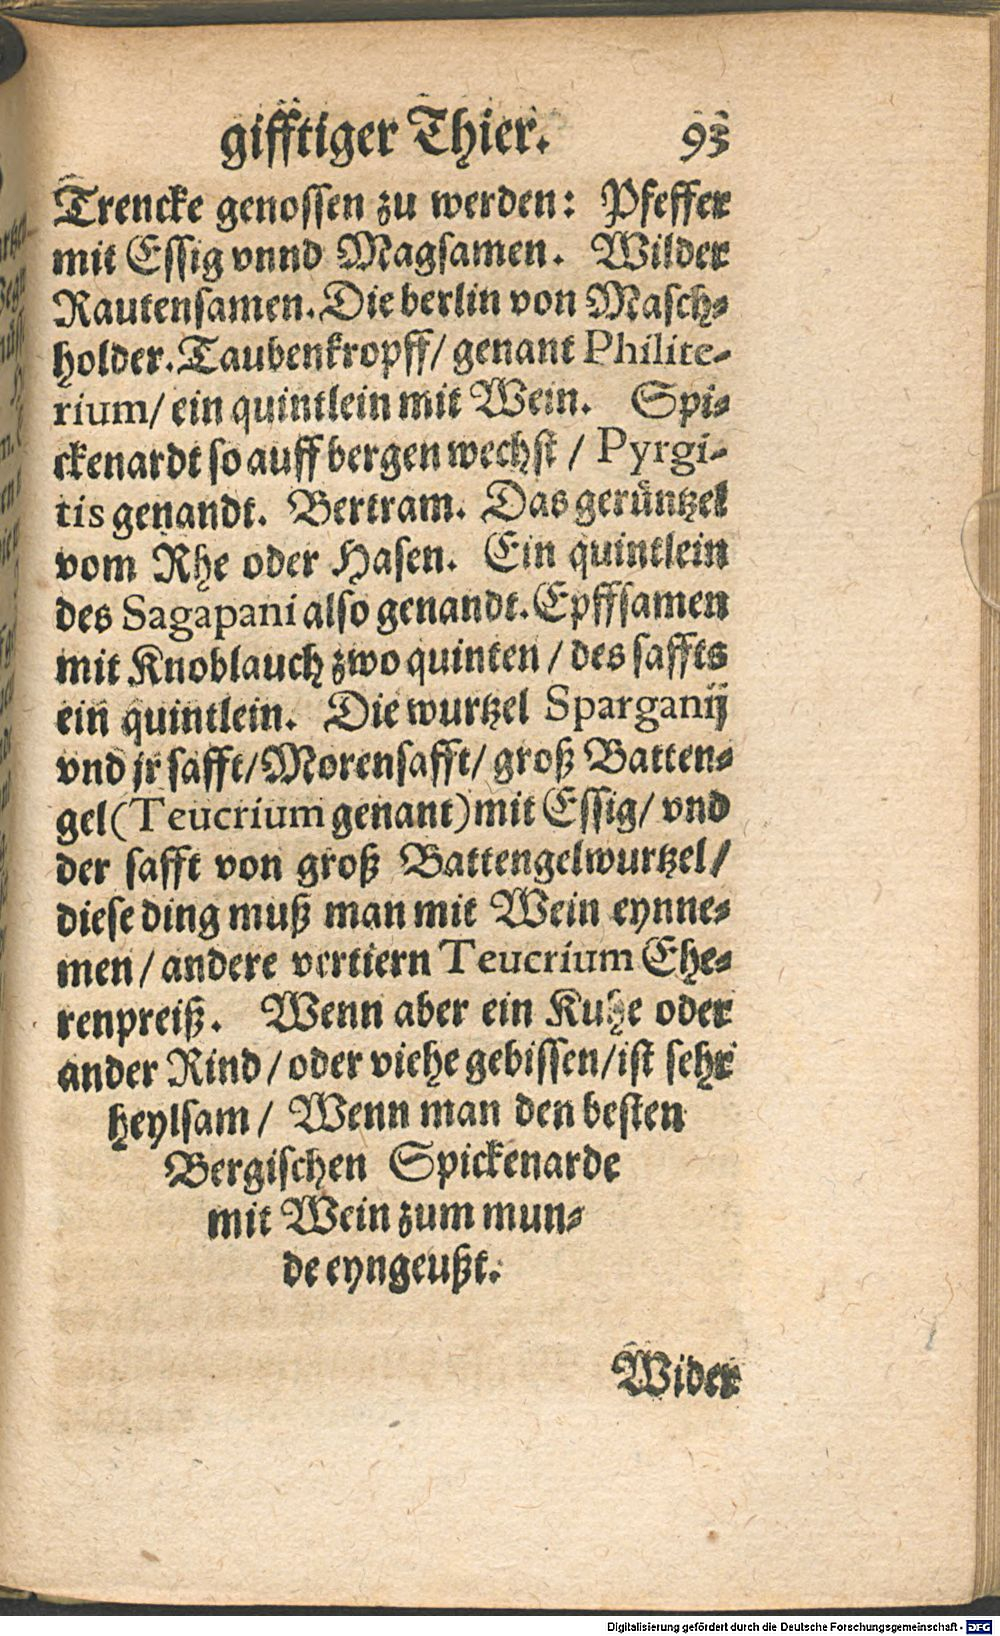 gifftiger Thier. 93
Trencke genossen zu werden: Pfeffer
mit Essig vnnd Magsamen. Wilder
Rautensamen. Die berlin von Masch⸗
holder. Taubenkropff/ genant Philite-
rium/ ein quintlein mit Wein. Spi⸗
ckenardt so auff bergen wechst / Pyrgi-
tis genandt. Bertram. Das gerüntzel
vom Rhe oder Hasen. Ein quintlein
des Sagapani also genandt. Epffsamen
mit Knoblauch zwo quinten / des saffts
ein quintlein. Die wurtzel Sparganij
vnd jr safft/ Morensafft/ groß Batten⸗
gel (Teucrium genant) mit Essig/ vnd
der safft von groß Battengelwurtzel/
diese ding muß man mit Wein eynne⸗
men / andere vertiern Teucrium Ehe⸗
renpreiß. Wenn aber ein Kuhe oder
ander Rind / oder viehe gebissen/ ist sehr
heylsam / Wenn man den besten
Bergischen Spickenarde
mit Wein zum mun⸗
de eyngeußt.
Wider
Digitalisierung gefördert durch die Deutsche Forschungsgemeinschaft - DFG